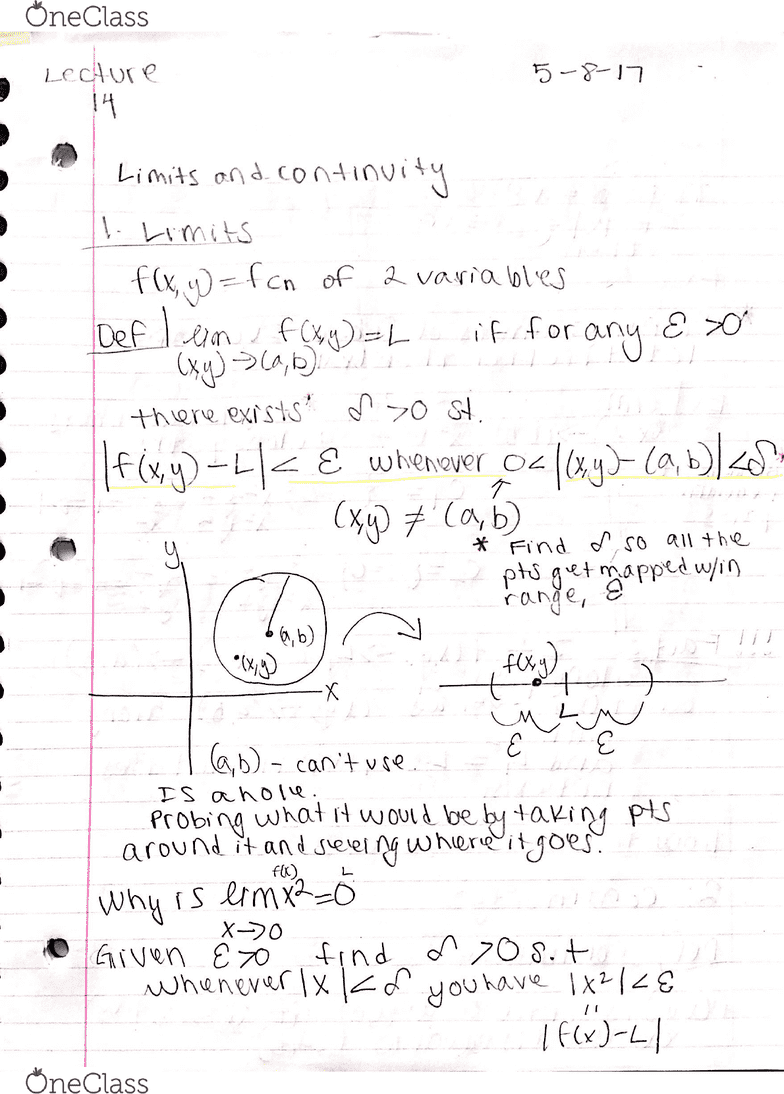 OneClass
Lecture 5-8-17
14
Limits and continuity
1. Limits
f(x,y) = fcn of 2 variables
Def | lim f(x,y) = L if for any ε >0*
(x,y) → (a,b)
there exists* δ >0 st.
|f(x,y) - L| < ε whenever 0 < |(x,y) - (a,b)| < δ*
↑
(x,y) ≠ (a,b)
* Find δ, so all the
pts get mapped w/in
range, ε
y
(a,b)
(x,y)
x
f(x,y)
L
ε ε
(a,b) - can't use.
Is a hole.
Probing what it would be by taking pts
around it and seeing where it goes.
f(x) L
Why is lim x² = 0
x→0
Given ε>0 find δ >0 s.t
whenever |x| < δ you have |x²| < ε
"
|f(x) - L|
OneClass